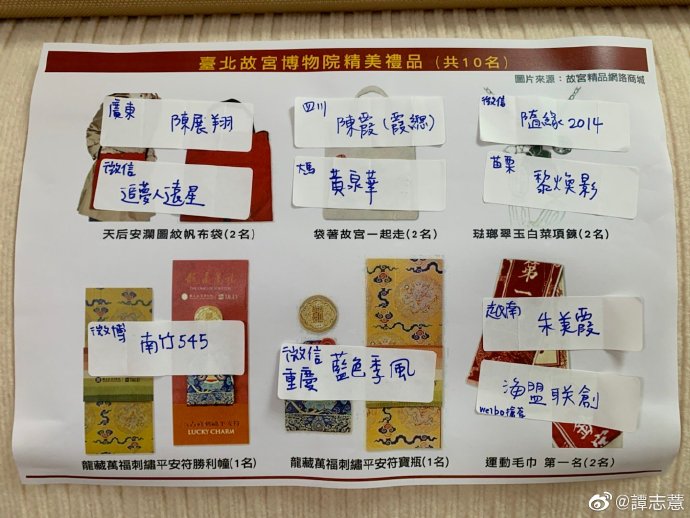 臺北故宮博物院精美禮品 (共10名)
圖片來源:故宮精品網路商城
廣東 陳展翔
微信 追夢人遠星
天后安瀾圖紋帆布袋(2名)
四川 陳霞(霞總)
大馬 黃泉華
袋著故宮一起走(2名)
微信 隨緣2014
苗栗 黎煥影
琺瑯翠玉白菜項鍊(2名)
微博 南竹545
LUCKY CHARM
龍藏萬福刺繡平安符勝利幢(1名)
微信 重慶 藍色季風
龍藏萬福刺繡平安符寶瓶(1名)
第一
越南 朱美霞
海盟联創
weibo
運動毛巾 第一名(2名)
@譚志薏